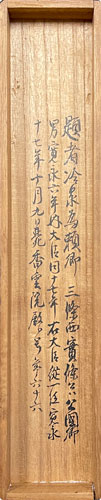 題者冷泉為頼卿　三條西實條公公國卿
男寛永六年内大臣同十七年右大臣従一位寛永
十七年十月九日薨香雲院殿ト号ス六十六